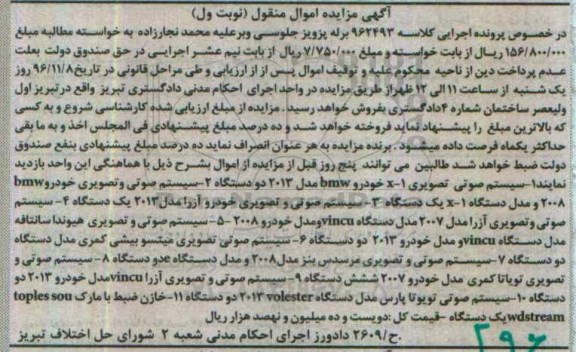 آگهی مزایده اموال منقول (نوبت ول)
در خصوص پرونده اجرایی کلاسه ۹۶۲۴۹۳ برله پرویز جلوسی وبرعلیه محمد نجارزاده به خواسته مطالبه مبلغ
۱۵۶/۸۰۰/۰۰۰ ریال از بابت خواسته و مبلغ ۷/۷۵۰/۰۰۰ ریال از بابت نیم عشر اجرایی در حق صندوق دولت بعلت
عدم پرداخت دین از ناحیه محکوم علیه و توقیف اموال پس از از ارزیابی و طی مراحل قانونی در تاریخ ۹۶/۱۱/۸ روز
یک شنبه از ساعت ۱۱ الی ۱۲ ظهراز طریق مزایده در واحد اجرای احکام مدنی دادگستری تبریز واقع درتبریز اول
ولیعصر ساختمان شماره ۴دادگستری بفروش خواهد رسید. مزایده از مبلغ ارزیابی شده کارشناسی شروع و به کسی
که بالاترین مبلغ را پیشنهاد نماید فروخته خواهد شد و ده درصد مبلغ پیشنهادی فی المجلس اخذ و به ما بقی
حداکثر یکماه فرصت داده میشود. برنده مزایده به هر عنوان انصراف نماید ده درصد مبلغ پیشنهادی بنفع صندوق
دولت ضبط خواهد شد طالبین می توانند پنج روز قبل از مزایده از اموال بشرح ذیل با هماهنگی این واحد بازدید
نمایند۱-سیستم صوتی تصویری x-۱ خودرو bmw مدل ۲۰۱۳ دو دستگاه ۲-سیستم صوتی وتصویری خودروbmw
۲۰۰۸ و مدل x-۱ یک دستگاه ۳-سیستم صوتی و تصویری خودرو آزرا مدل۲۰۱۳ یک دستگاه ۴- سیستم
صوتی وتصویری آزرا مدل ۲۰۰۷ مدل دستگاه vincuومدل خودرو ۲۰۰۸ -۵- سیستم صوتی و تصویری هیوندا سانتافه
مدل دستگاه vincuو مدل خودرو ۲۰۱۳ دو دستگاه ۶- سیستم صوتی تصویری میتسو بیشی کمری مدل دستگاه
دو دستگاه ۷-سیستم صوتی و تصویری مرسدس بنز مدل۲۰۰۸ و مدل دستگاه eدو دستگاه ۸- سیستم صوتی و
تصویری تویاتا کمری مدل خودرو ۲۰۰۷ شش دستگاه ۹-سیستم صوتی و تصویری آزرا vincuمدل خودرو ۲۰۱۳ دو
دستگاه ۱۰-سیستم صوتی تویوتا پارس مدل دستگاه volester ۲۰۱۳ دو دستگاه ۱۱-خازن ضبط با مارک toples sou
wdstreamیک دستگاه -قیمت کل :دویست و ده میلیون و نهصد هزار ریال
.ح/۲۶۰۹ دادورز اجرای احکام مدنی شعبه ۲ شورای حل اختلاف تبریز
۲۹۶